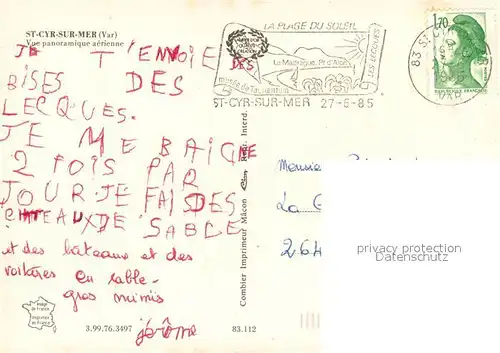 ST-CYR-SUR-MER (Var)
Vue panoramique aérienne
JE T'ENVOIE DES
BISES DES
LECQUES.
JE ME BAIGNE
2 FOIS PAR
JOUR. JE FAIS DES
CHATEAUX DE SABLE
et des bateaux et des
voitures en sable.
gros mimis
jérôme
3.99.76.3497
83.112
Combier Imprimeur Mâcon
Interd.
LA PLAGE DU SOLEIL
LES LECQUES
La Madrague, Pt d'Alon
musée de Tauroentum
ST-CYR-SUR-MER 27-5-85
1,70
REPUBLIQUE FRANÇAISE
83 ST
VAR
Monsieur
La
264
privacy protection
DARABANTH.COM